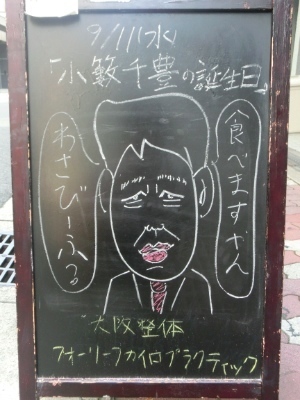 9/11(水)
「小籔千豊の誕生日」
食べますやん
わさびーふる
大阪整体
フォーリーフカイロプラクティック